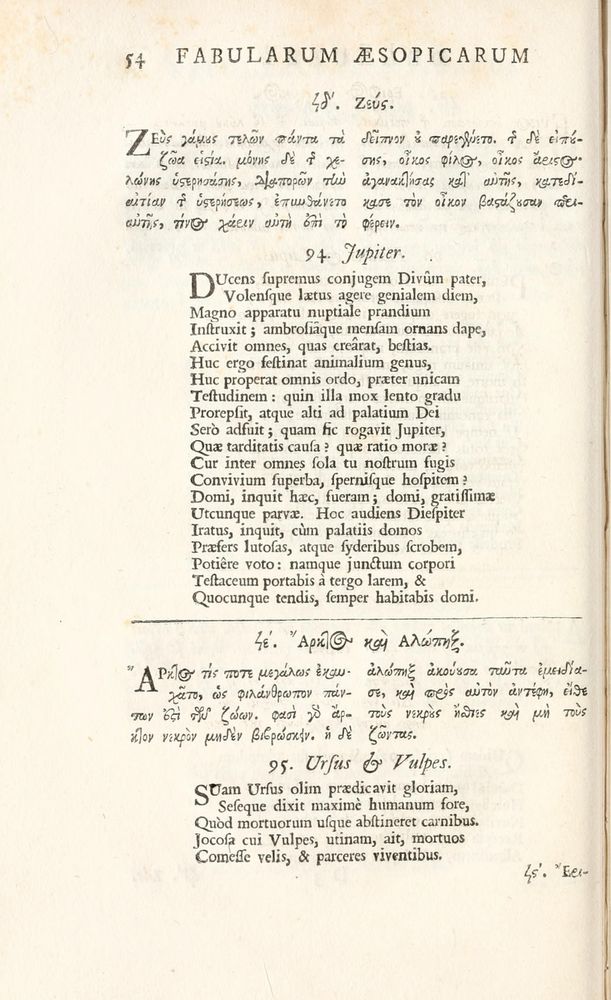 54 FABULARUM ÆSOPICARUM
ϟδʹ. Ζεύς.
ΖΕὺς γάμους τελῶν πάντα τὰ
ζῶα εἱστία. μόνης δὲ τ χε-
λώνης ὑστερησάσης, διαπορῶν τὴν
αἰτίαν τ ὑστερήσεως, ἐπυνθάνετο
αὐτῆς, τίνος χάριν αὐτὴ ἐπὶ τὸ
δεῖπνον ȣ παρεγένετο. τ δὲ εἰπού-
σης, οἶκος φίλος, οἶκος ἄριστος.
ἀγανακτήσας καὶ αὐτῆς, κατεδί-
κασε τὸν οἶκον βαστάζουσαν περι-
φέρειν.
94. Jupiter.
DUcens ſupremus conjugem Divûm pater,
Volenſque lætus agere genialem diem,
Magno apparatu nuptiale prandium
Inſtruxit; ambroſiâque menſam ornans dape,
Accivit omnes, quas creârat, beſtias.
Huc ergo feſtinat animalium genus,
Huc properat omnis ordo, præter unicam
Teſtudinem: quin illa mox lento gradu
Prorepſit, atque alti ad palatium Dei
Serò adfuit; quam ſic rogavit Jupiter,
Quæ tarditatis cauſa? quæ ratio moræ?
Cur inter omnes ſola tu noſtrum fugis
Convivium ſuperba, ſperniſque hoſpitem?
Domi, inquit hæc, fueram; domi, gratiſſimæ
Utcunque parvæ. Hoc audiens Dieſpiter
Iratus, inquit, cùm palatiis domos
Præfers lutoſas, atque ſyderibus ſcrobem,
Potiêre voto: namque junctum corpori
Teſtaceum portabis à tergo larem, &
Quocunque tendis, ſemper habitabis domi.
ϟεʹ. Ἄρκτος καὶ Αλώπηξ.
ἌΡκτος τίς ποτε μεγάλως ἐκαυ-
χᾶτο, ὡς φιλάνθρωπον πάν-
των ἐστὶ τῶν ζώων. φασὶ γὸ ἄρ-
κτον νεκρὸν μηδὲν βιβρώσκην. ἡ δὲ
ἀλώπηξ ἀκούσα ταῦτα ἐμειδία-
σε, καὶ πρὸς αὐτὸν ἀντέφη, εἴθε
τοὺς νεκροὺς ἤσθιες καὶ μὴ τοὺς
ζῶντας.
95. Urſus & Vulpes.
SUam Urſus olim prædicavit gloriam,
Seſeque dixit maximè humanum fore,
Quòd mortuorum uſque abſtineret carnibus.
Jocoſa cui Vulpes, utinam, ait, mortuos
Comeſſe velis, & parceres viventibus.
ϟϛʹ. Ἔρι-